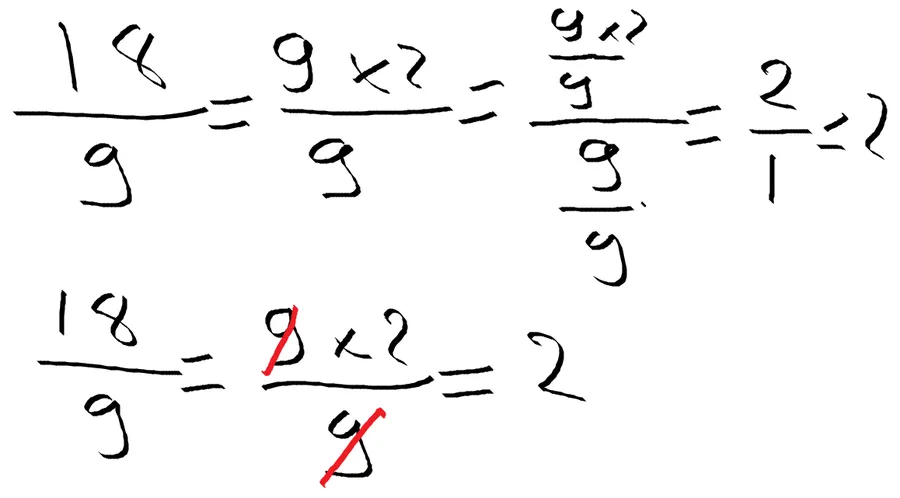 18/9 = 9×2/9 = (9×2/9)/(9/9) = 2/1 = 2
18/9 = 9×2/9 = 2